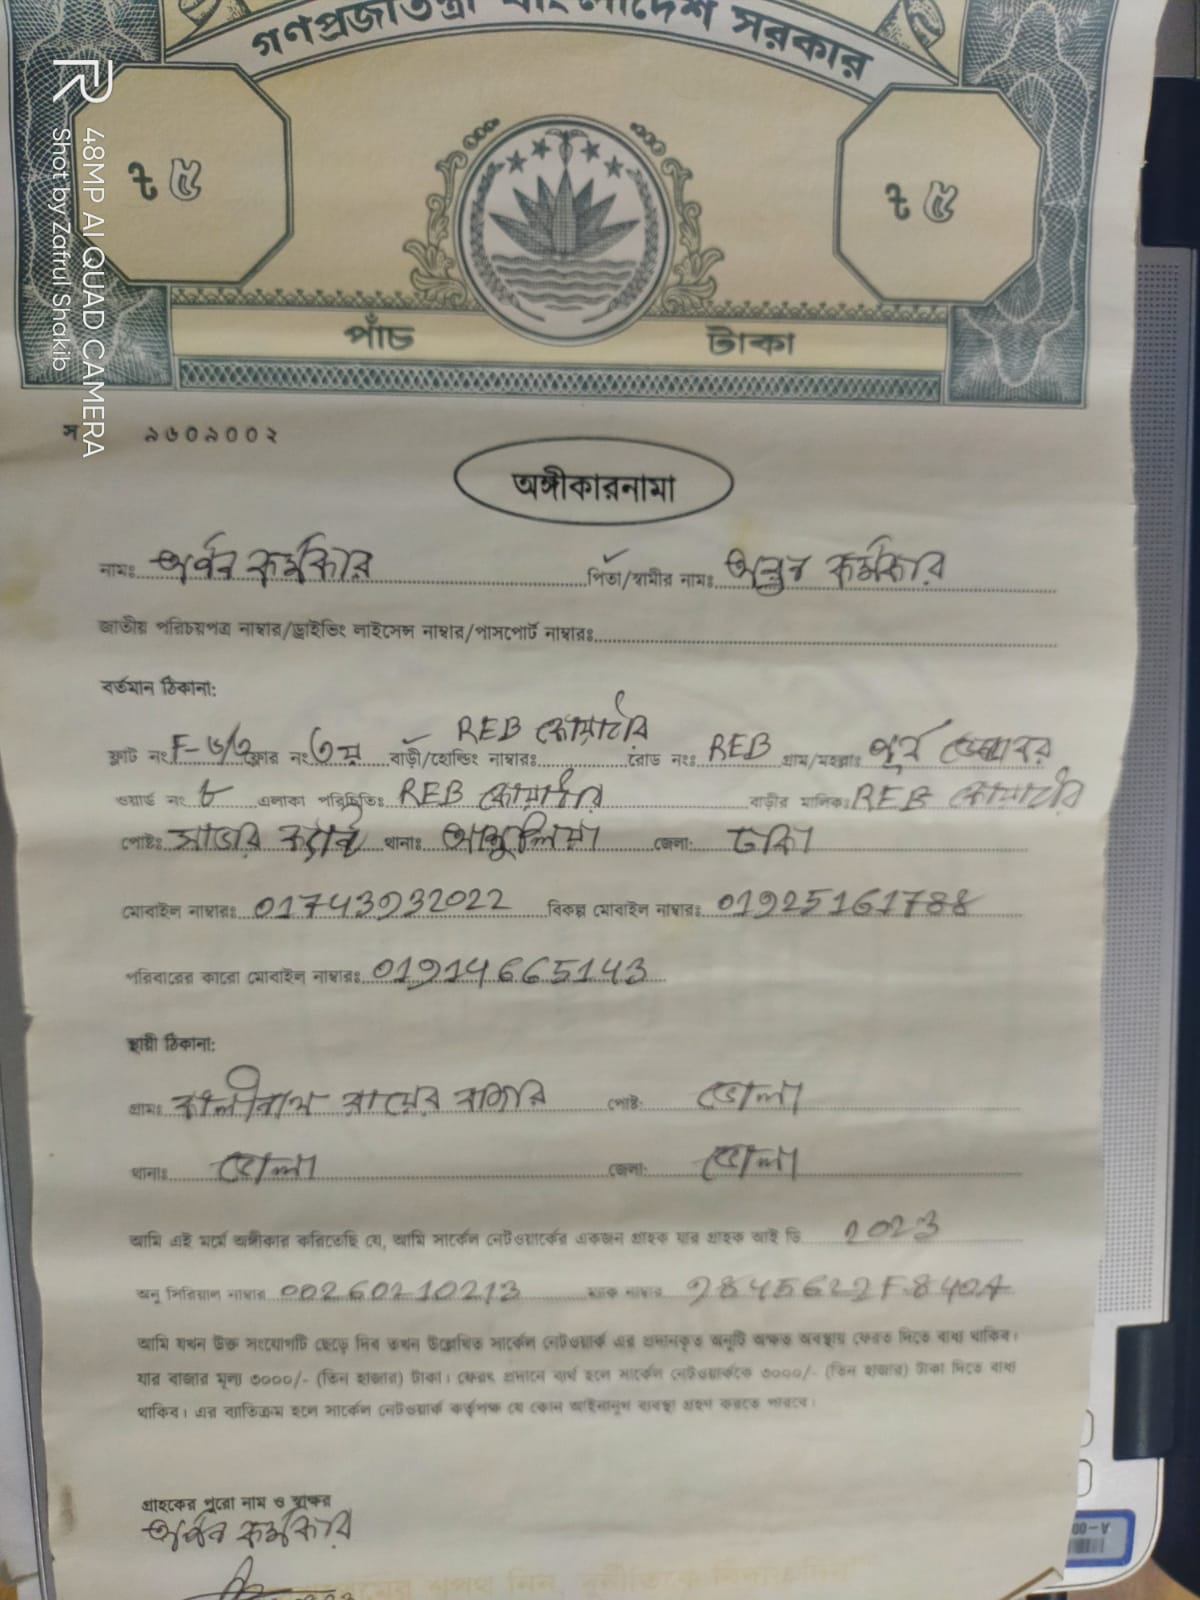 গণপ্রজাতন্ত্রী বাংলাদেশ সরকার
৳ ৫
৳ ৫
পাঁচ টাকা
48MP AI QUAD CAMERA
Shot by Zafrul Shakib
স ৯৬০৯০০২
অঙ্গীকারনামা
নামঃ অর্নব কর্মকার পিতা/স্বামীর নামঃ কর্মকার
জাতীয় পরিচয়পত্র নাম্বার/ড্রাইভিং লাইসেন্স নাম্বার/পাসপোর্ট নাম্বারঃ
বর্তমান ঠিকানা:
REB কোয়ার্টার
ফ্লাট নং F-৬/৩ ফ্লোর নং ৩য় বাড়ী/হোল্ডিং নাম্বারঃ রোড নংঃ REB গ্রাম/মহল্লাঃ পূর্ব
ওয়ার্ড নং ৮ এলাকা পরিচিতিঃ REB কোয়ার্টার বাড়ীর মালিকঃ REB কোয়ার্টার
পোষ্টঃ সাভার থানাঃ আশুলিয়া জেলা: ঢাকা
মোবাইল নাম্বারঃ 01743932022 বিকল্প মোবাইল নাম্বারঃ 01925161788
পরিবারের কারো মোবাইল নাম্বারঃ 01914665143
স্থায়ী ঠিকানা:
গ্রামঃ কালীনাথ রায়ের বাজার পোষ্ট: ভোলা
থানাঃ ভোলা জেলা: ভোলা
আমি এই মর্মে অঙ্গীকার করিতেছি যে, আমি সার্কেল নেটওয়ার্কের একজন গ্রাহক যার গ্রাহক আই ডি 2023
অনু সিরিয়াল নাম্বার 00260210213 ম্যাক নাম্বার
আমি যখন উক্ত সংযোগটি ছেড়ে দিব তখন উল্লেখিত সার্কেল নেটওয়ার্ক এর প্রদানকৃত অনুটি অক্ষত অবস্থায় ফেরত দিতে বাধ্য থাকিব।
যার বাজার মূল্য ৩০০০/- (তিন হাজার) টাকা। ফেরৎ প্রদানে ব্যর্থ হলে সার্কেল নেটওয়ার্ককে ৩০০০/- (তিন হাজার) টাকা দিতে বাধ্য
থাকিব। এর ব্যতিক্রম হলে সার্কেল নেটওয়ার্ক কর্তৃপক্ষ যে কোন আইনানুগ ব্যবস্থা গ্রহণ করতে পারবে।
গ্রাহকের পুরো নাম ও স্বাক্ষর
অর্নব কর্মকার